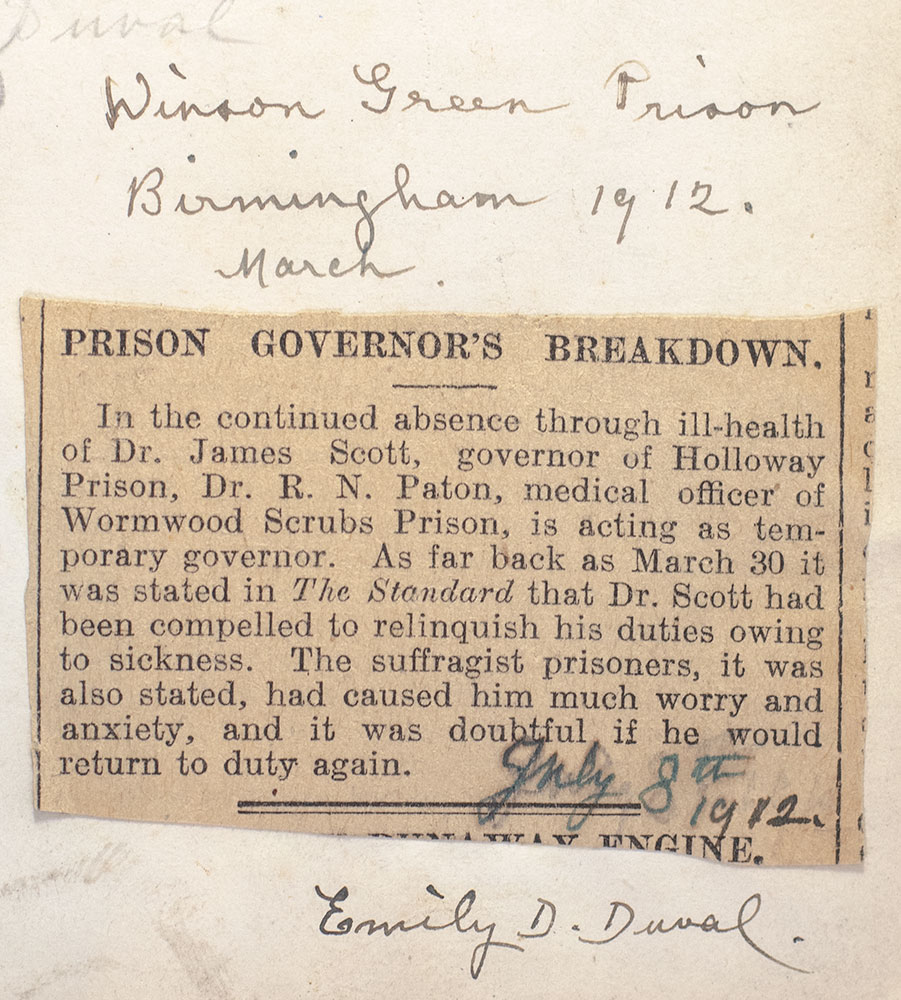 Duval
Winson Green Prison
Birmingham 1912.
March.
PRISON GOVERNOR'S BREAKDOWN.
In the continued absence through ill-health
of Dr. James Scott, governor of Holloway
Prison, Dr. R. N. Paton, medical officer of
Wormwood Scrubs Prison, is acting as tem-
porary governor. As far back as March 30 it
was stated in The Standard that Dr. Scott had
been compelled to relinquish his duties owing
to sickness. The suffragist prisoners, it was
also stated, had caused him much worry and
anxiety, and it was doubtful if he would
return to duty again.
July 8th
1912.
RUNAWAY ENGINE.
Emily D. Duval.